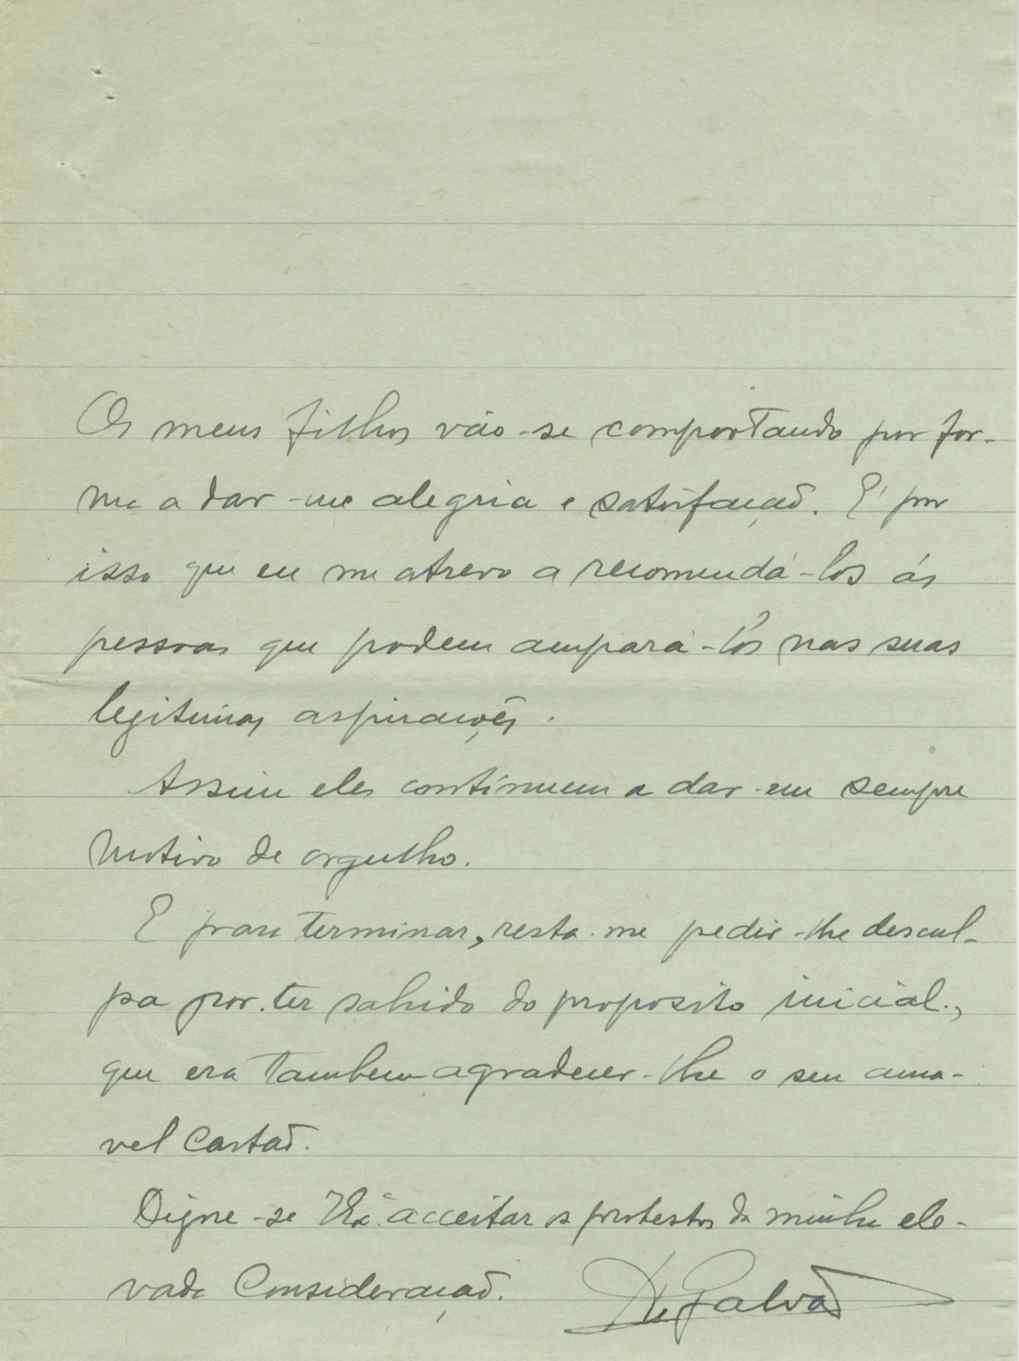 Os meus filhos vão-se comportando por for-
ma a dar-me alegria e satisfação. E' por
isso que eu me atrevo a recomendá-los ás
pessoas que podem ampará-los nas suas
legitimas aspirações.
Assim eles continuem a dar-em sempre
motivo de orgulho.
E para terminar, resta-me pedir-lhe descul-
pa por ter sahido do proposito inicial,
que era tambem agradecer-lhe o seu ama-
vel Cartão.
Digne-se V. Ex.ª acceitar os protestos da minha ele-
vada Consideração. Galvão